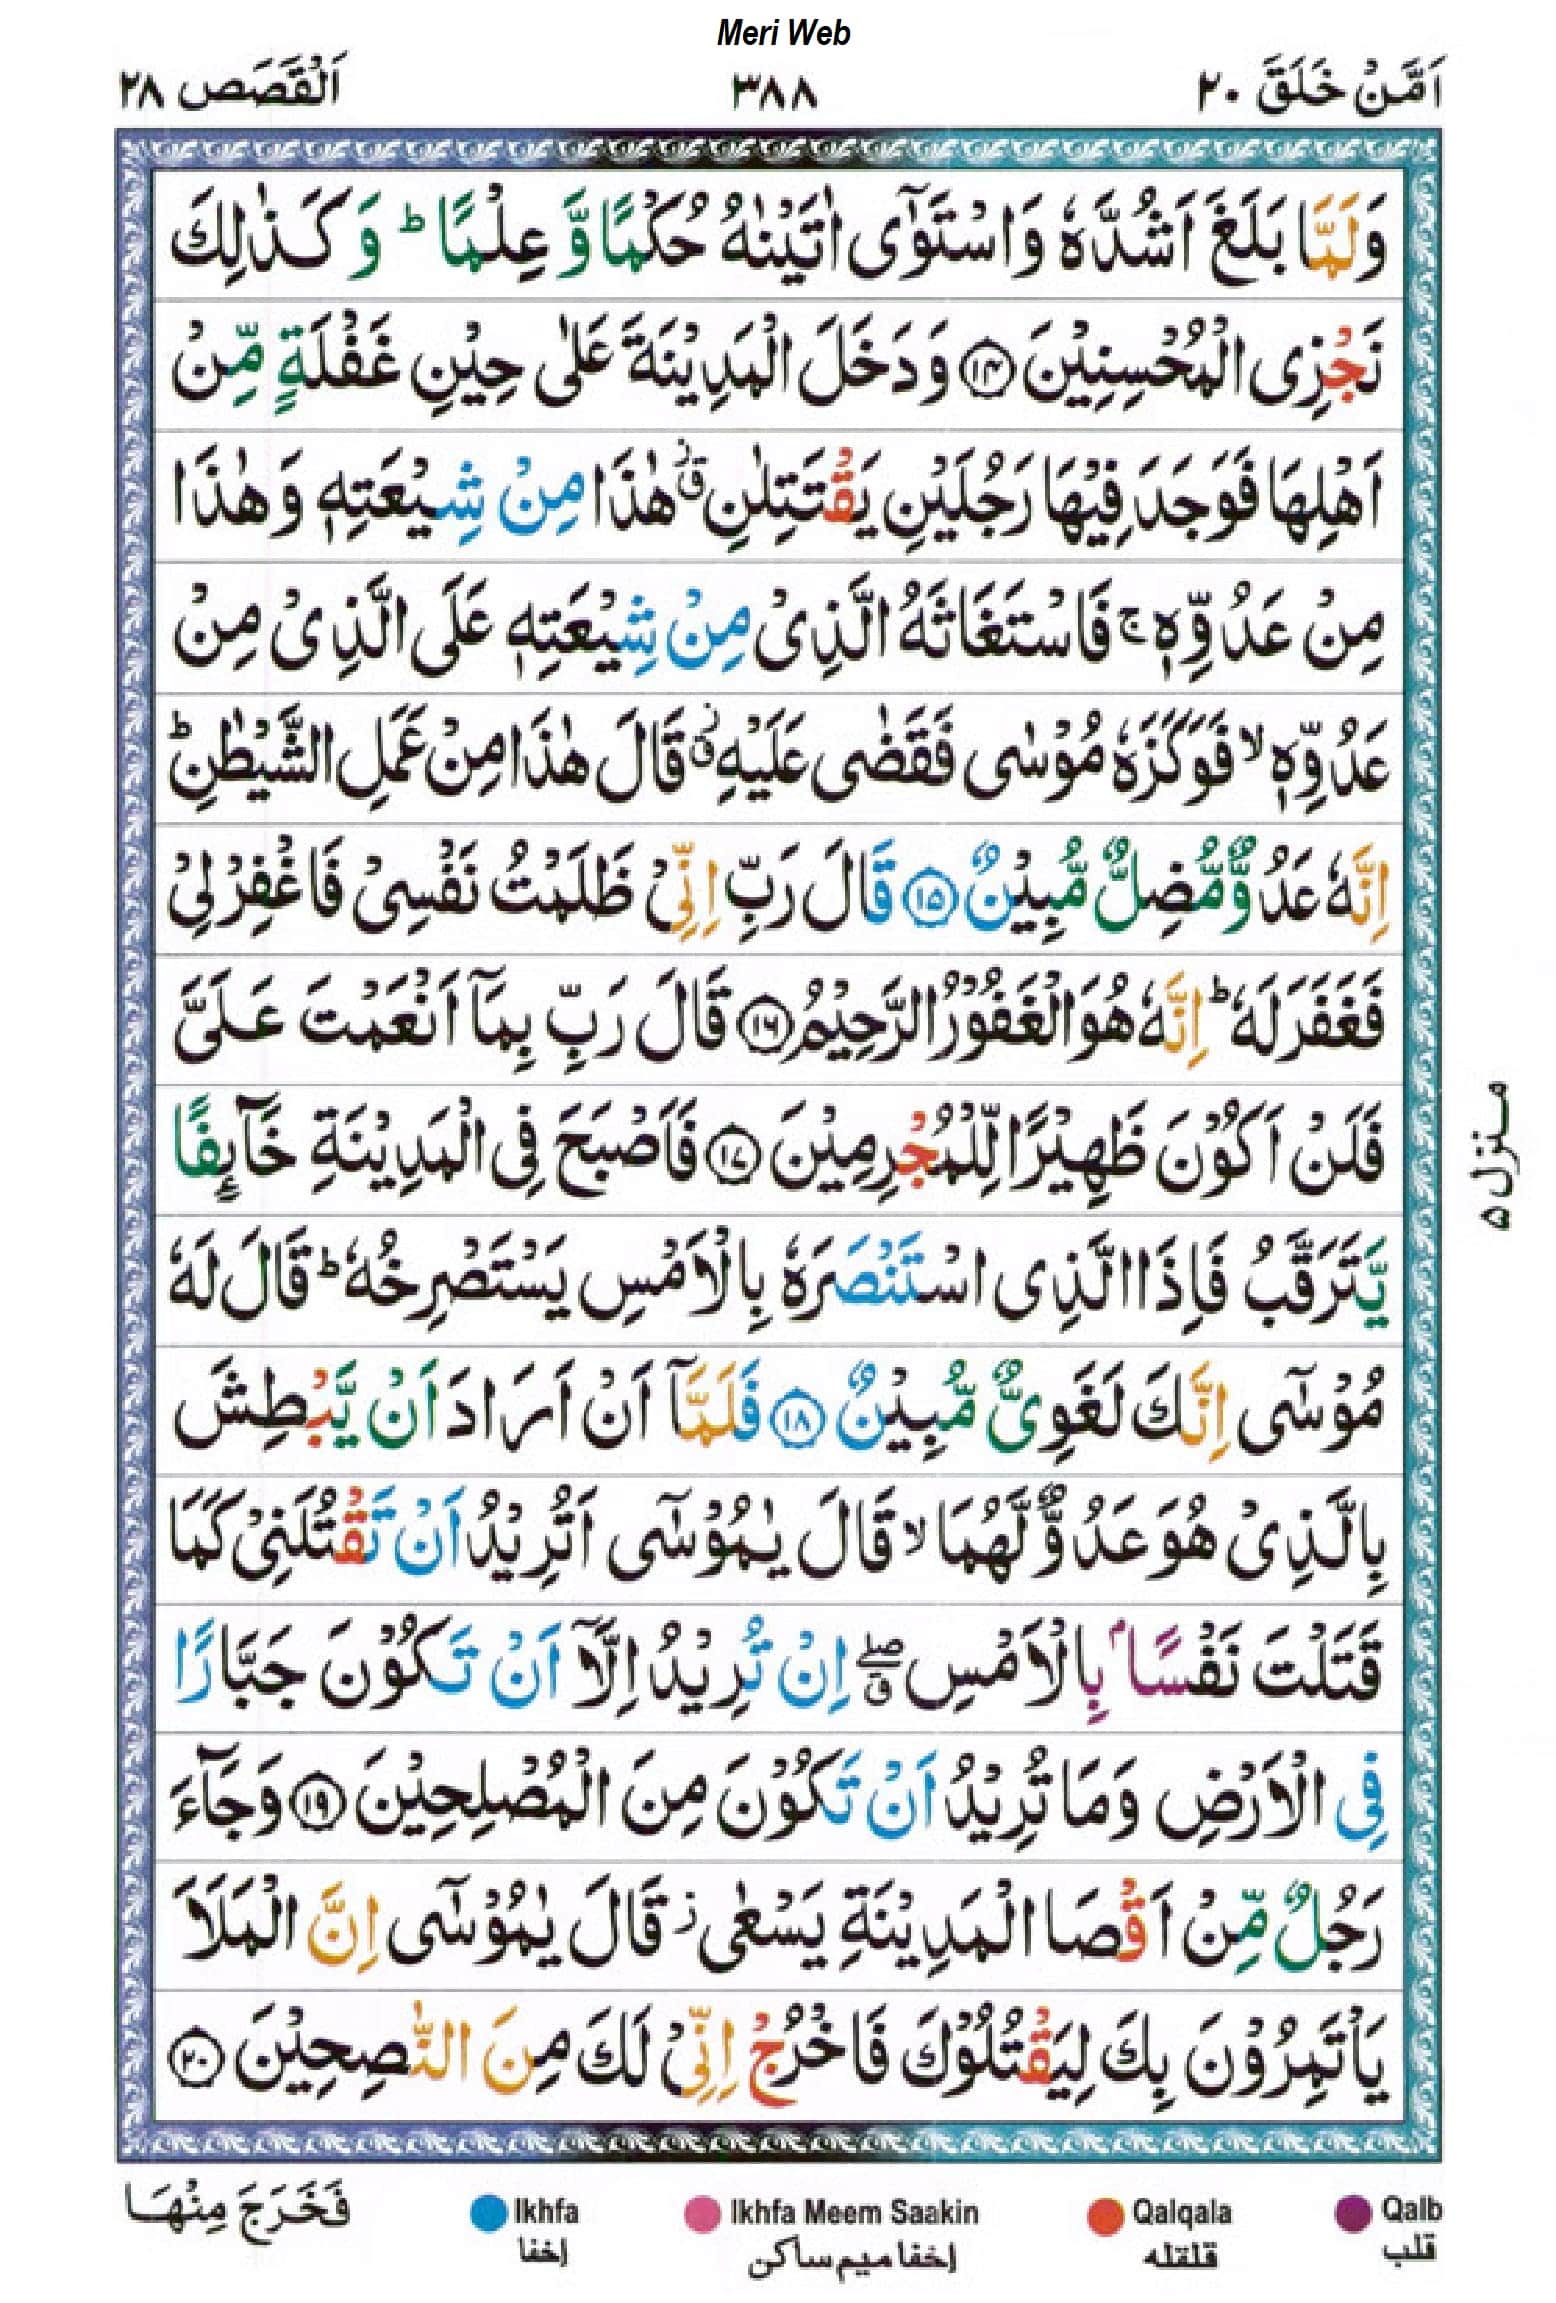 Meri Web
اَمَّنْ خَلَقَ ٢٠
٣٨٨
اَلْقَصَص ٢٨
وَلَمَّا بَلَغَ اَشُدَّهٗ وَاسْتَوٰۤى اٰتَيْنٰهُ حُكْمًا وَّعِلْمًا ؕ وَكَذٰلِكَ
نَجْزِى الْمُحْسِنِيْنَ ﴿۱۴﴾ وَدَخَلَ الْمَدِيْنَةَ عَلٰى حِيْنِ غَفْلَةٍ مِّنْ
اَهْلِهَا فَوَجَدَ فِيْهَا رَجُلَيْنِ يَقْتَتِلٰنِ ؗۗ هٰذَا مِنْ شِيْعَتِهٖ وَهٰذَا
مِنْ عَدُوِّهٖ ۚ فَاسْتَغَاثَهُ الَّذِىْ مِنْ شِيْعَتِهٖ عَلَى الَّذِىْ مِنْ
عَدُوِّهٖ ۙ فَوَكَزَهٗ مُوْسٰى فَقَضٰى عَلَيْهِ ؗۗ قَالَ هٰذَا مِنْ عَمَلِ الشَّيْطٰنِ ؕ
اِنَّهٗ عَدُوٌّ مُّضِلٌّ مُّبِيْنٌ ﴿۱۵﴾ قَالَ رَبِّ اِنِّىْ ظَلَمْتُ نَفْسِىْ فَاغْفِرْ لِىْ
فَغَفَرَ لَهٗ ؕ اِنَّهٗ هُوَ الْغَفُوْرُ الرَّحِيْمُ ﴿۱۶﴾ قَالَ رَبِّ بِمَاۤ اَنْعَمْتَ عَلَىَّ
فَلَنْ اَكُوْنَ ظَهِيْرًا لِّلْمُجْرِمِيْنَ ﴿۱۷﴾ فَاَصْبَحَ فِى الْمَدِيْنَةِ خَآئِفًا
يَّتَرَقَّبُ فَاِذَا الَّذِى اسْتَنْصَرَهٗ بِالْاَمْسِ يَسْتَصْرِخُهٗ ؕ قَالَ لَهٗ
مُوْسٰۤى اِنَّكَ لَغَوِىٌّ مُّبِيْنٌ ﴿۱۸﴾ فَلَمَّاۤ اَنْ اَرَادَ اَنْ يَّبْطِشَ
بِالَّذِىْ هُوَ عَدُوٌّ لَّهُمَا ۙ قَالَ يٰمُوْسٰۤى اَتُرِيْدُ اَنْ تَقْتُلَنِىْ كَمَا
قَتَلْتَ نَفْسًاۢ بِالْاَمْسِ ۖۗ اِنْ تُرِيْدُ اِلَّاۤ اَنْ تَكُوْنَ جَبَّارًا
فِى الْاَرْضِ وَمَا تُرِيْدُ اَنْ تَكُوْنَ مِنَ الْمُصْلِحِيْنَ ﴿۱۹﴾ وَجَآءَ
رَجُلٌ مِّنْ اَقْصَا الْمَدِيْنَةِ يَسْعٰى ؗ قَالَ يٰمُوْسٰۤى اِنَّ الْمَلَاَ
يَاْتَمِرُوْنَ بِكَ لِيَقْتُلُوْكَ فَاخْرُجْ اِنِّىْ لَكَ مِنَ النّٰصِحِيْنَ ﴿۲۰﴾
منزل ۵
فَخَرَجَ مِنْهَا
Ikhfa
اخفا
Ikhfa Meem Saakin
اخفا ميم ساكن
Qalqala
قلقله
Qalb
قلب